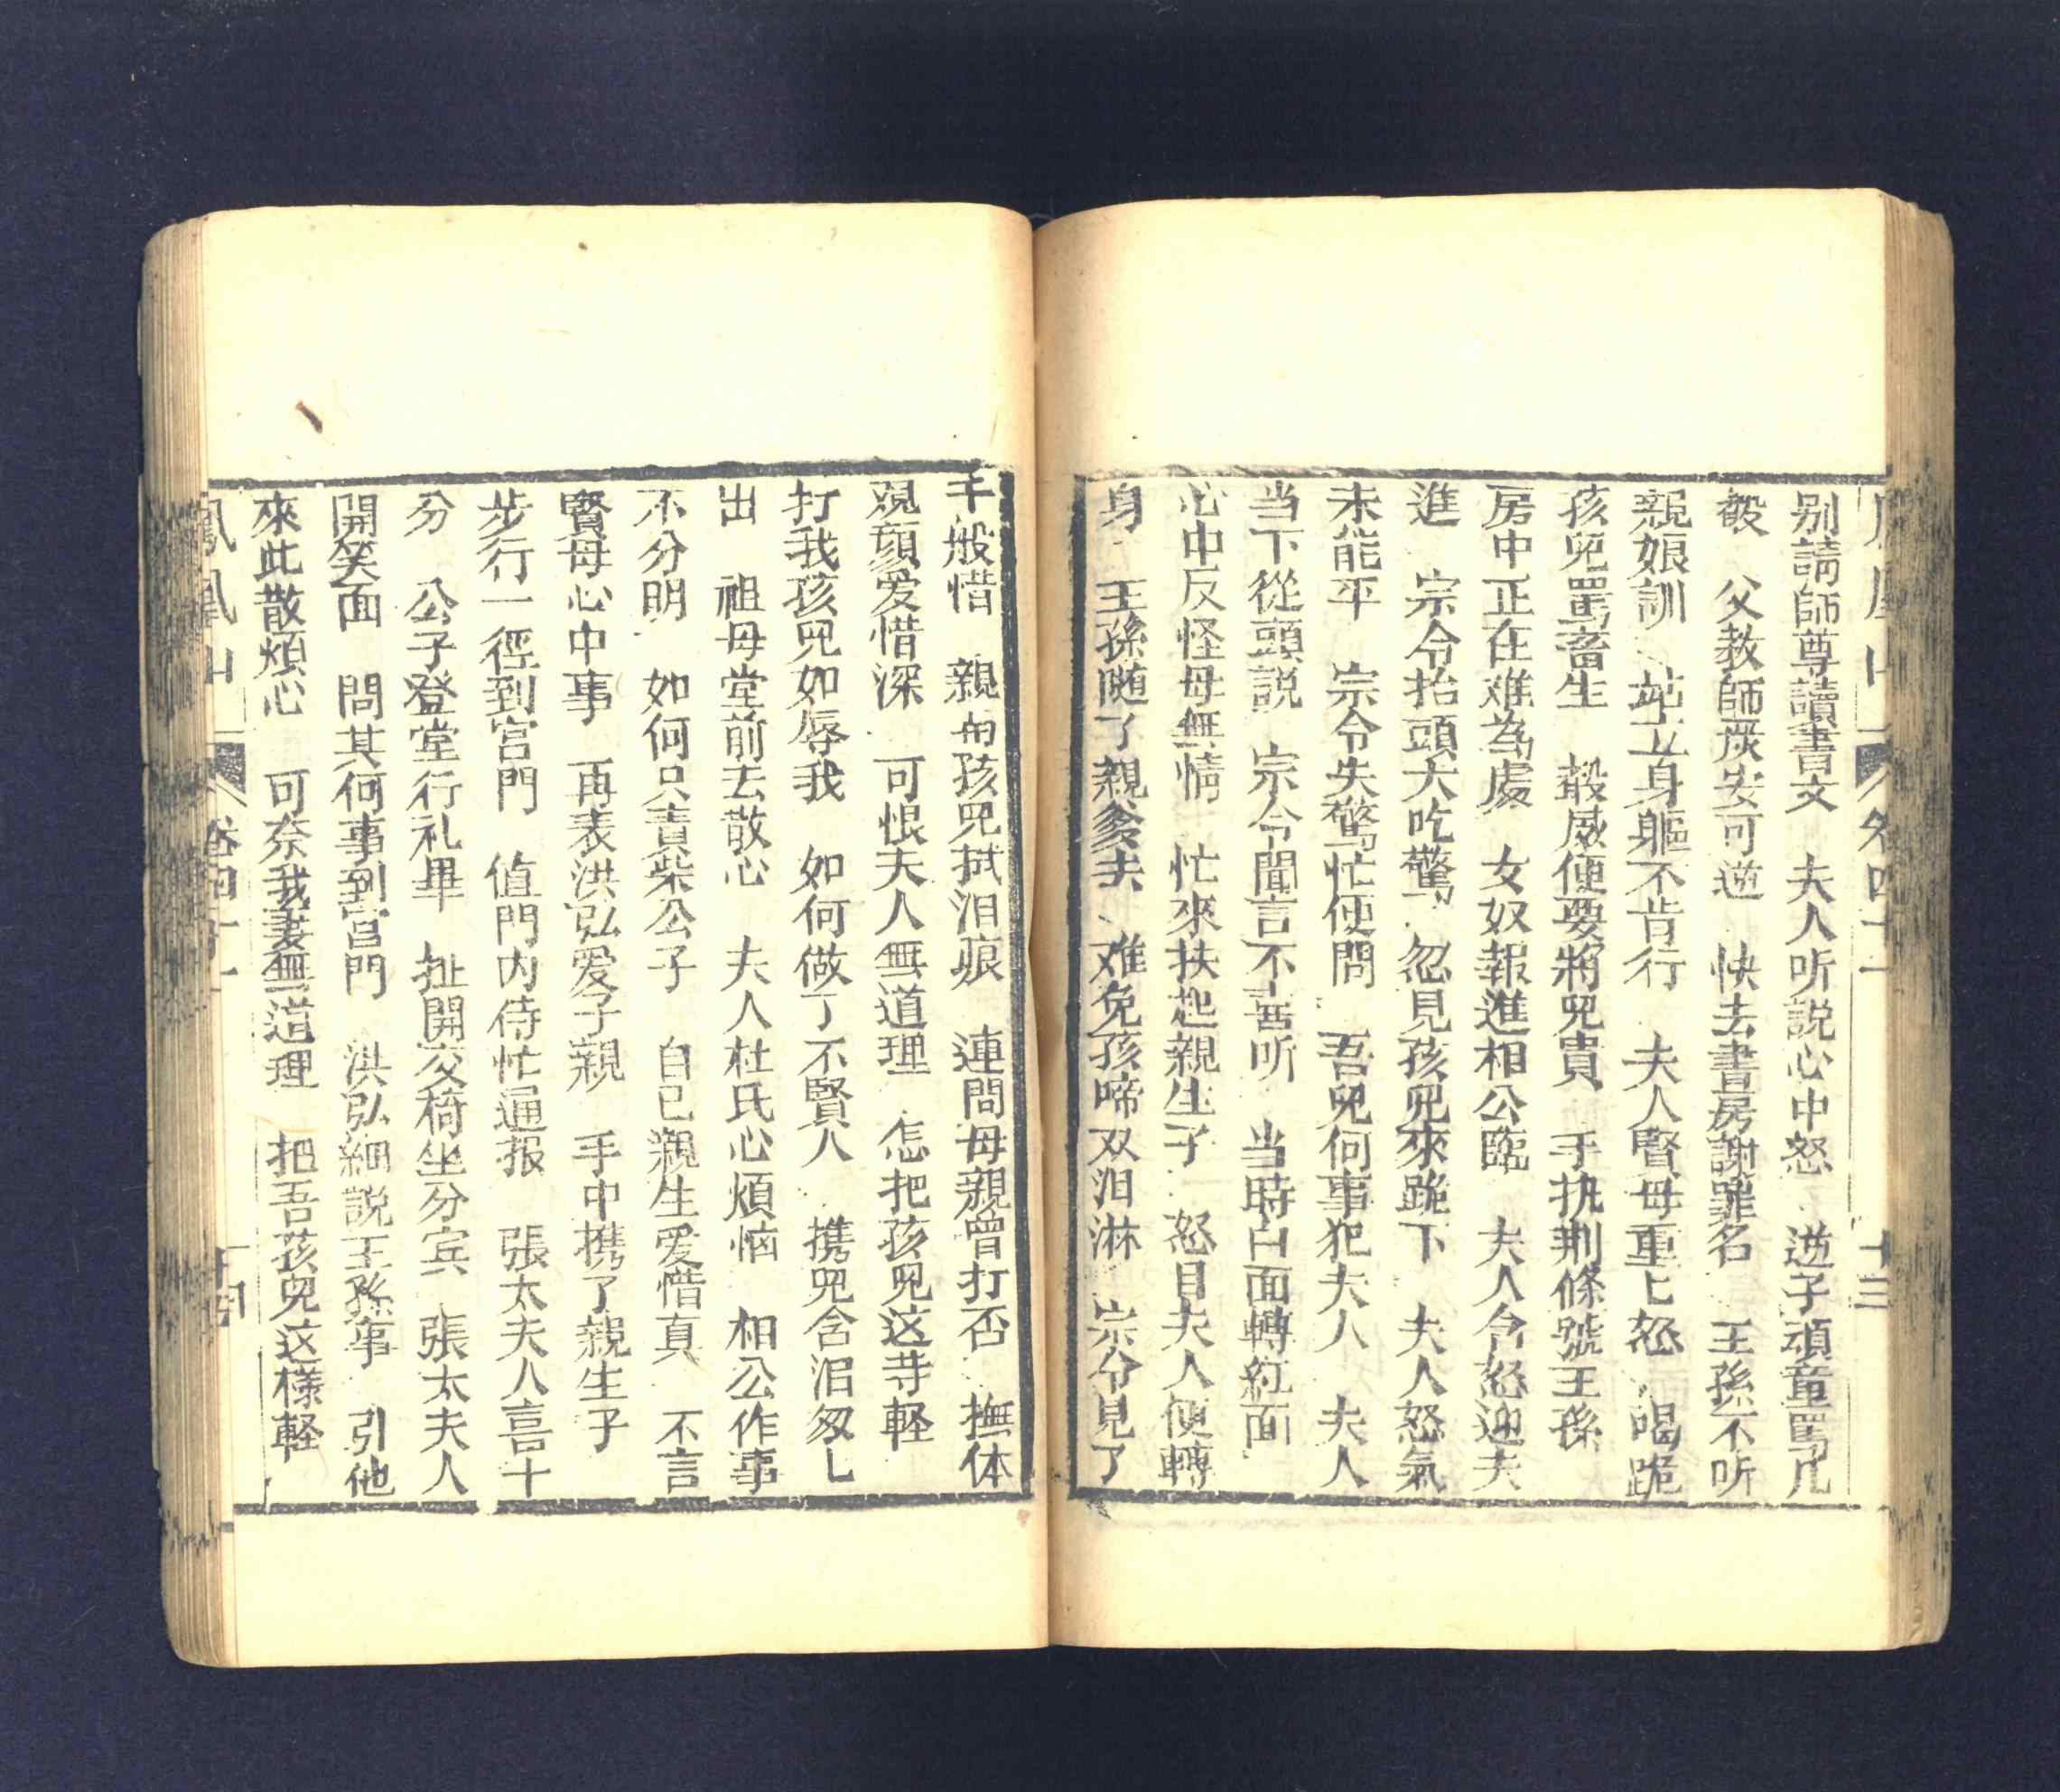 別請師尊讀書文　夫人听説心中怒　逆子頑童罵几
般　父教師嚴安可逆　快去書房謝罪名　王孫不听
親娘訓　站立身軀不肯行　夫人賢母重匕怒　喝跪
孩兒罵畜生　發威便要將兒責　手执荆條號王孫
房中正在难為處　女奴報進相公臨　夫人含怒迎夫
進　宗令抬頭大吃驚　忽見孩兒來跪下　夫人怒氣
未能平　宗令失驚忙便問　吾兒何事犯夫人　夫人
当下從頭説　宗令聞言不喜听　当時白面轉紅面
心中反怪母無情　忙來扶起親生子　怒目夫人便轉
身　王孫随了親爹去　难免孩啼双泪淋　宗令見了
千般惜　親向孩兒拭泪痕　連問母親曾打否　撫体
親顔爱惜深　可恨夫人無道理　怎把孩兒这等輕
打我孩兒如辱我　如何做了不賢人　携兒含泪匆乚
出　祖母堂前去散心　夫人杜氏心煩惱　相公作事
不分明　如何只責柴公子　自己親生爱惜真　不言
賢母心中事　再表洪弘爱子親　手中携了親生子
步行一徑到宫門　值門内侍忙通报　張太夫人喜十
分　公子登堂行礼畢　扯開交椅坐分宾　張太夫人
開笑面　問其何事到宫門　洪弘細説王孫事　引他
來此散煩心　可奈我妻無道理　把吾孩兒这樣輕
鳳凰山　卷四十一　十四